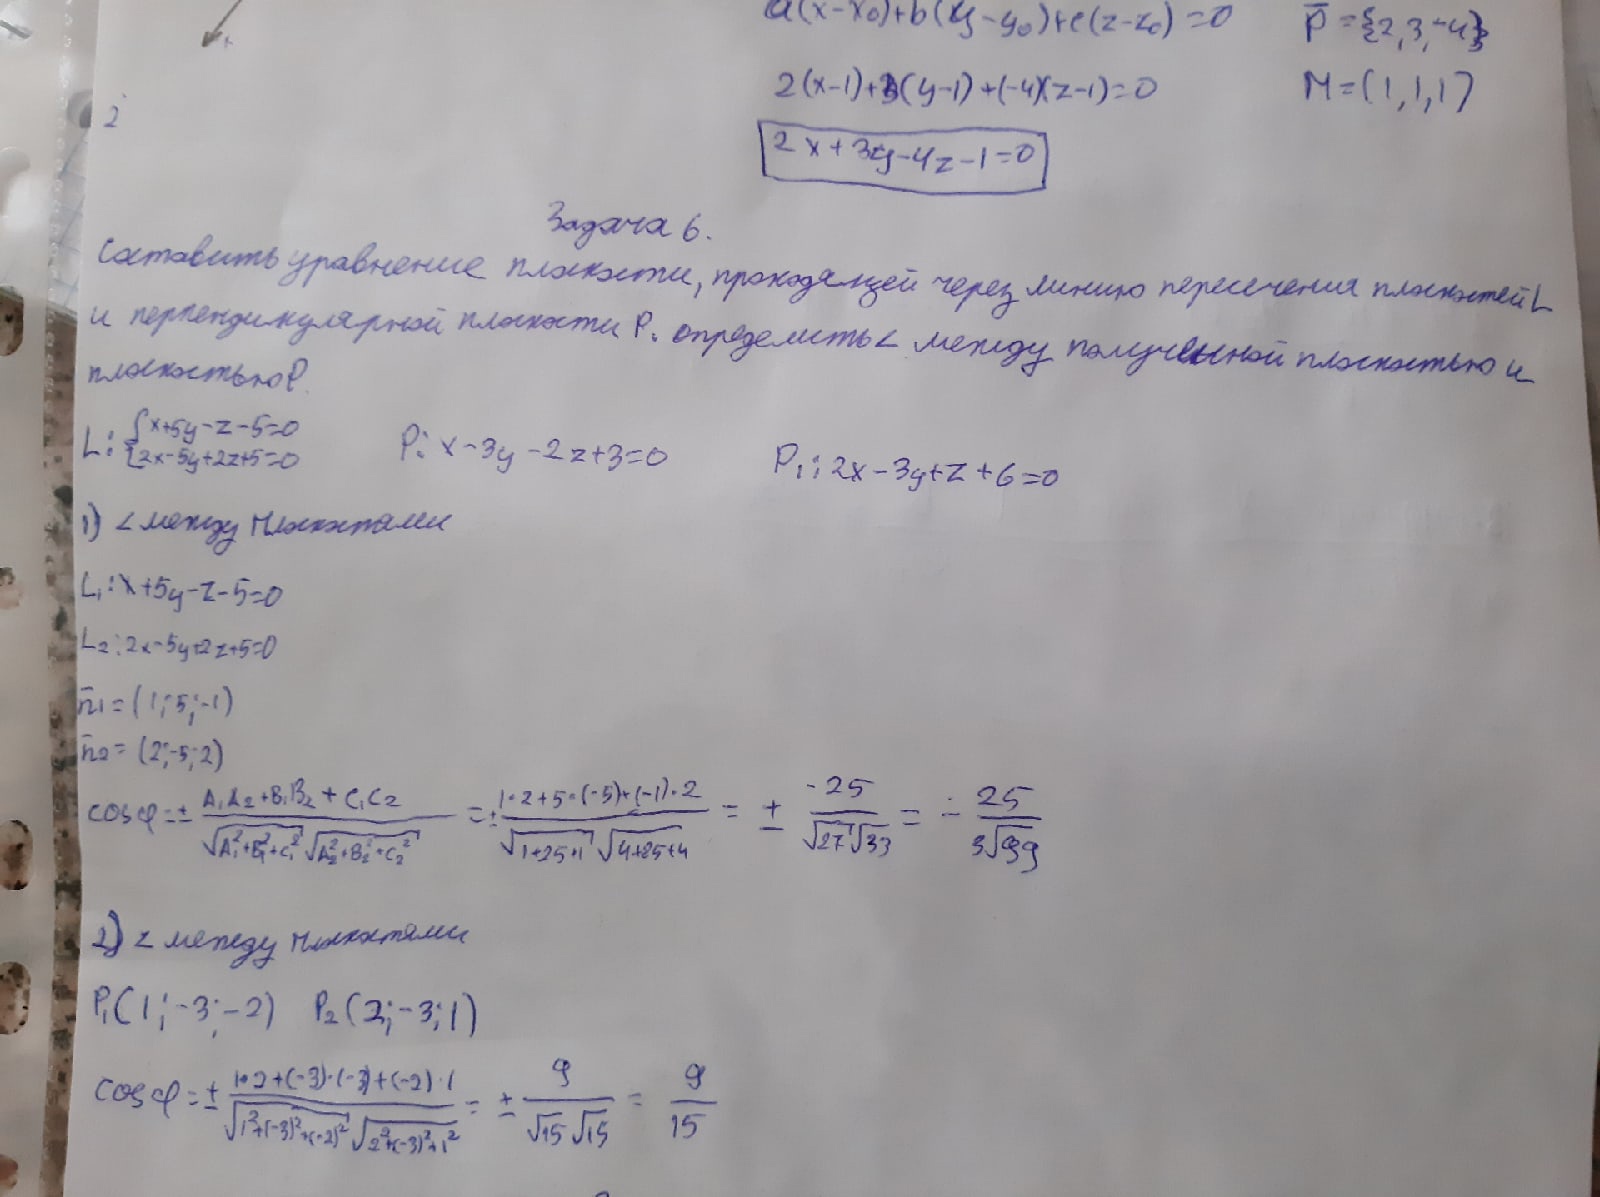 a(x-x₀)+b(y-y₀)+c(z-z₀)=0 p̄={2,3,-4}
2(x-1)+3(y-1)+(-4)(z-1)=0 M=(1,1,1)
2
2x+3y-4z-1=0
Задача 6.
Составить уравнение плоскости, проходящей через линию пересечения плоскостей L
и перпендикулярной плоскости P. определить ∠ между полученной плоскостью и
плоскостью P.
L: {x+5y-z-5=0 P: x-3y-2z+3=0 P₁: 2x-3y+z+6=0
{2x-5y+2z+5=0
1) ∠ между плоскостями
L₁: x+5y-z-5=0
L₂: 2x-5y+2z+5=0
n̄₁=(1;5;-1)
n̄₂=(2;-5;2)
cosφ=± (A₁A₂+B₁B₂+C₁C₂)/(√(A₁²+B₁²+C₁²)√(A₂²+B₂²+C₂²)) =± (1·2+5·(-5)+(-1)·2)/(√(1+25+1)√(4+25+4)) = ± -25/(√27√33) = - 25/(3√99)
2) ∠ между плоскостями
P₁(1;-3;-2) P₂(2;-3;1)
cosφ=± (1·2+(-3)·(-3)+(-2)·1)/(√(1²+(-3)²+(-2)²)√(2²+(-3)²+1²)) = ± 9/(√15√15) = 9/15